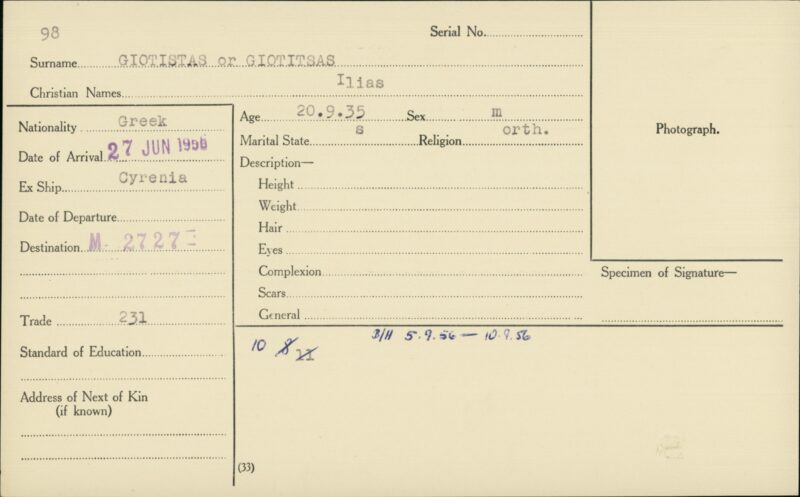 98
Serial No.
Surname GIOTISTAS or GIOTITSAS
Christian Names Ilias
Nationality Greek
Date of Arrival 27 JUN 1956
Ex Ship Cyrenia
Date of Departure
Destination M 2727
Trade 231
Standard of Education
Address of Next of Kin
(if known)
Age 20.9.35 Sex m
Marital State s Religion orth.
Description—
Height
Weight
Hair
Eyes
Complexion
Scars
General
Photograph.
Specimen of Signature—
B/H 5.9.56 — 10.9.56
10 8
(33)